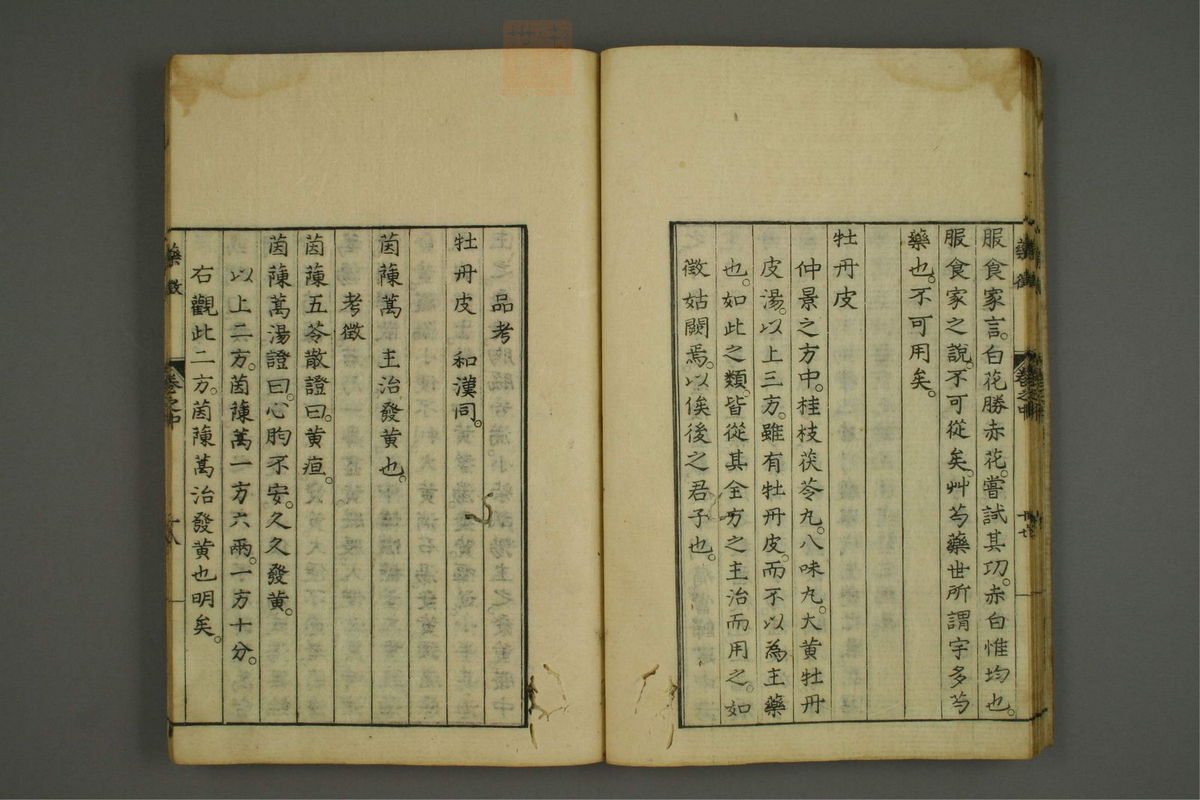 服食家言。白花勝赤花。嘗試其功。赤白惟均也。
服食家之說。不可從矣。艸芍藥世所謂宇多芍
藥也。不可用矣。
牡丹皮
仲景之方中。桂枝茯苓丸。八味丸。大黄牡丹
皮湯。以上三方。雖有牡丹皮。而不以為主藥
也。如此之類。皆從其全方之主治而用之。如
徵姑闕焉。以俟後之君子也。
藥徵
卷之中
品考
牡丹皮 和漢同。
茵蔯蒿 主治發黄也。
考徵
茵蔯五苓散證曰。黄疸。
茵蔯蒿湯證曰。心胷不安。久久發黄。
以上二方。茵蔯蒿一方六兩。一方十分。
右觀此二方。茵蔯蒿治發黄也明矣。
藥徵
卷之中
十八